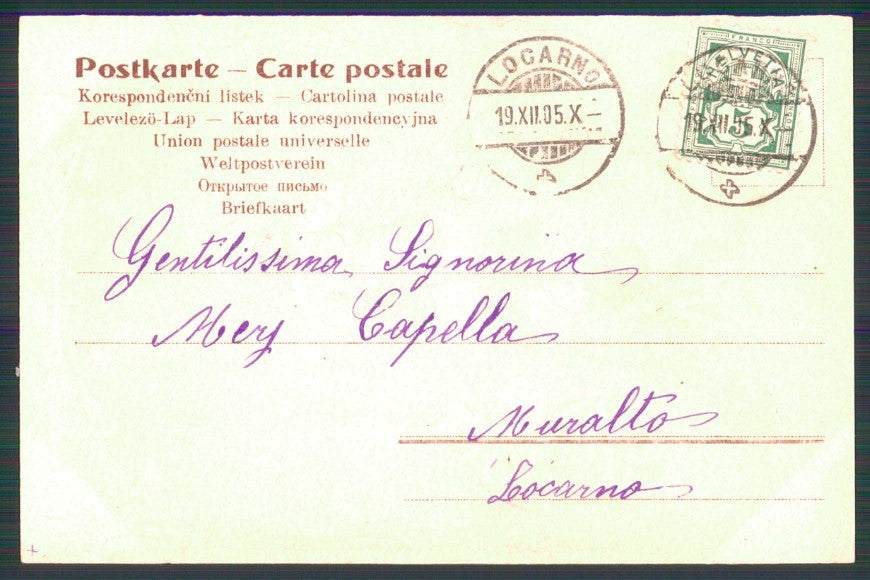 Postkarte – Carte postale
Korespondenční lístek — Cartolina postale
Levelező-Lap — Karta korespondencyjna
Union postale universelle
Weltpostverein
Открытое письмо
Briefkaart
LOCARNO
19.XII.05.X –
FRANCO
HELVETIA
5
19.XII.05.X
Gentilissima Signorina
Mery Capella
Muralto
Locarno